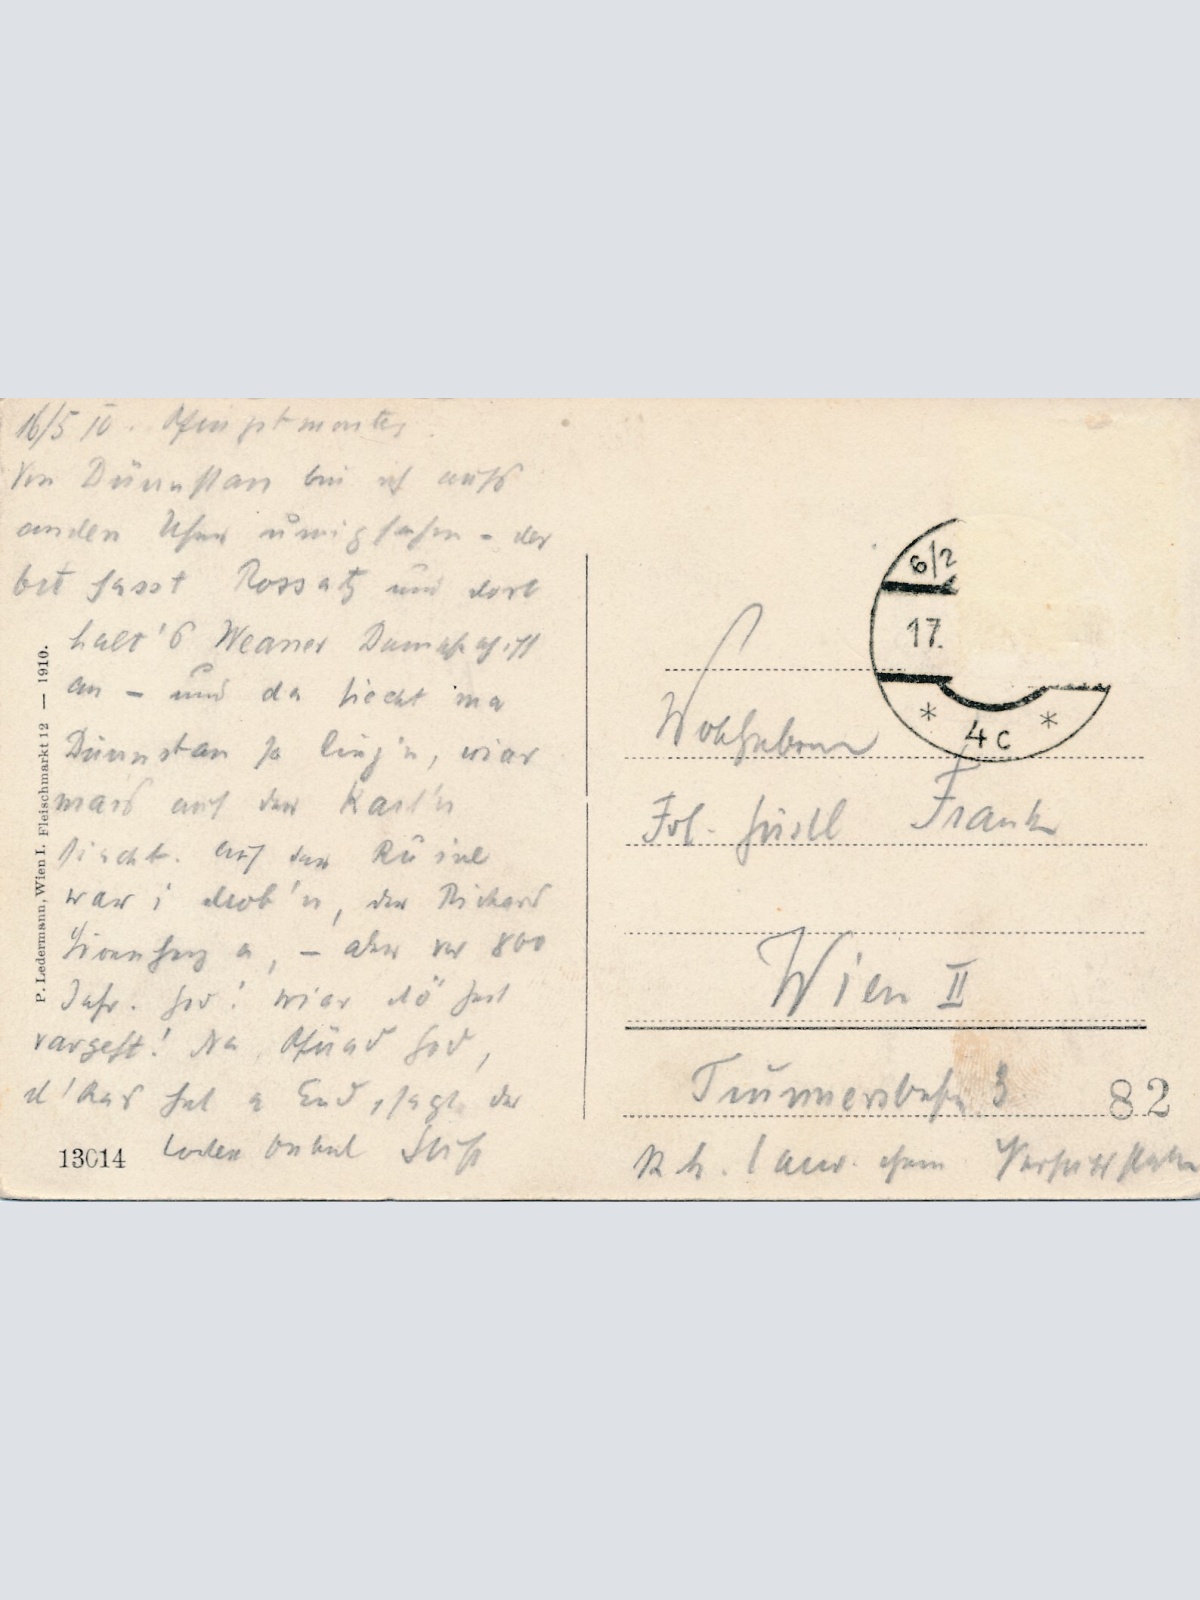 16/5 10. Pfingstmontag
Von Dürnstan bin ich aufs
andere Ufer umigfahrn - der
hasst Rossatz und dort
halt's Weaner Dampfschiff
an - und da siecht ma
Dürnstan so lieg'n, wiar
mas auf der Kart'n
siecht. Auf der Ruine
war i drob'n, der Richard
a, - aber vor 800
Jahr. wiar dö Zeit
vargeht! Na, Pfiad God,
d' Kart hat a End, sagt der
Loden Onkel
P. Ledermann, Wien I. Fleischmarkt 12 — 1910.
13014
6/2
17.
* 4c *
Wohlgeboren
Frl. Gustl Frank
Wien II
3
82